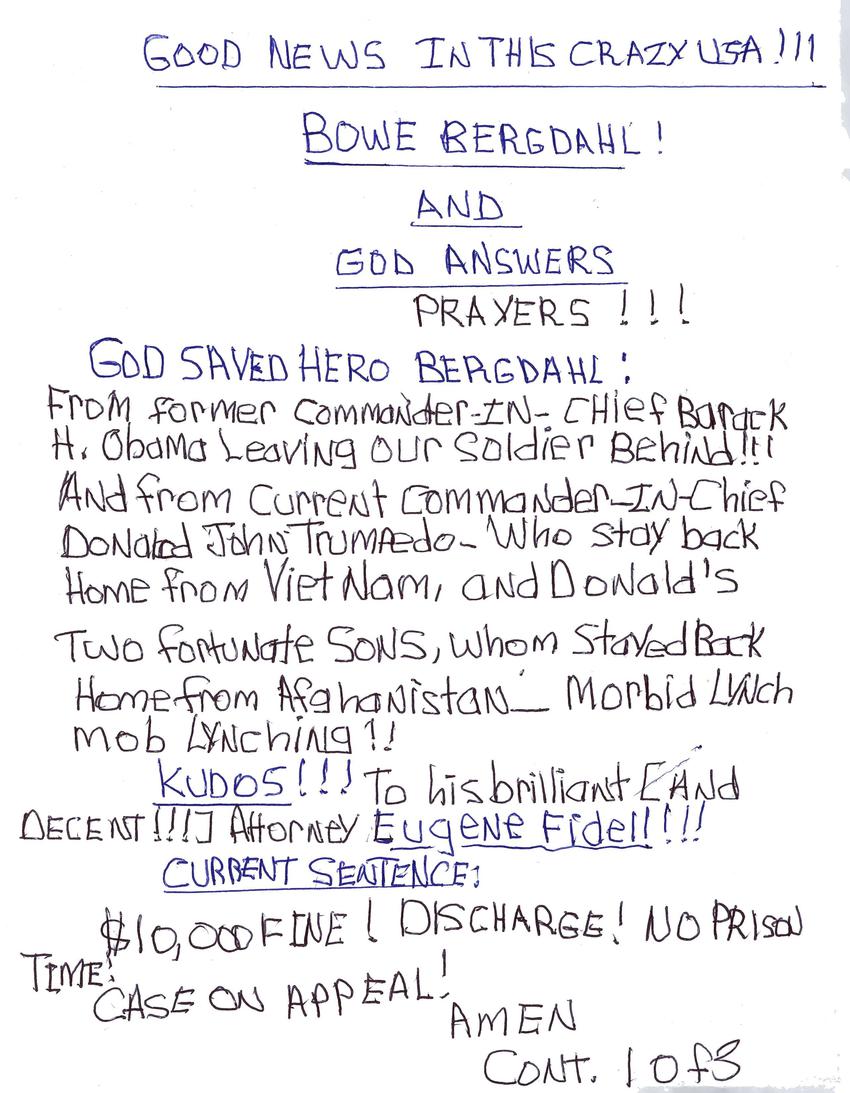 GOOD NEWS IN THIS CRAZY USA!!!
BOWE BERGDAHL!
AND
GOD ANSWERS
PRAYERS!!!
GOD SAVED HERO BERGDAHL:
From former Commander-IN-CHief Barack
H. Obama Leaving our Soldier Behind!!!
And from Current Commander-IN-Chief
Donald John Trumpedo- Who stay back
Home from Viet Nam, and Donald's
Two fortunate Sons, whom Stayed Back
Home from Afghanistan_ Morbid LYNch
mob LYNching!!
KUDOS!!! To his brilliant [And
DECENT!!!] Attorney Eugene Fidell!!!
CURRENT SENTENCE:
$10,000 FINE! DISCHARGE! NO PRISON
TIME!
CASE ON APPEAL!
AMEN
CONT. 1 of 3